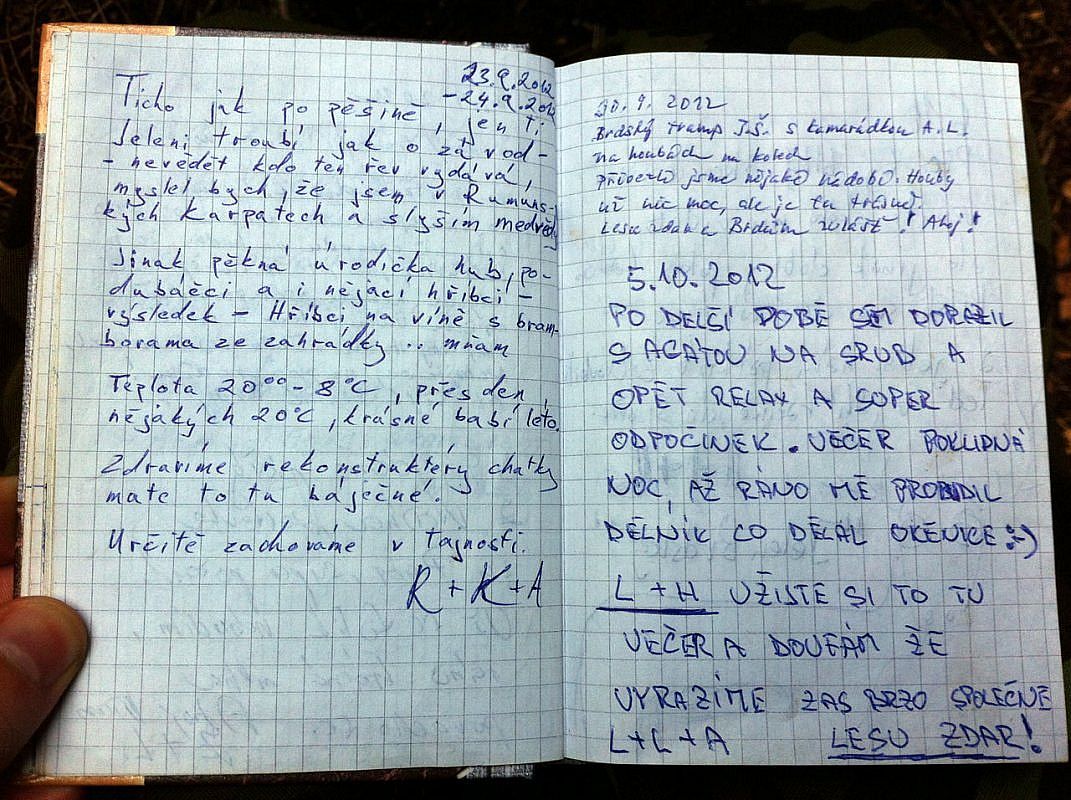 23.9.2012
-24.9.2012
Ticho jak po pěšině, jen ti
jeleni troubí jak o závod-
- nevědět kdo ten řev vydává,
myslel bych, že jsem v Rumuns-
kých Karpatech a slyším medvědy
Jinak pěkná úrodička hub, po-
dubáčci a i nějací hřibci -
výsledek - Hřibci na víně s bram-
borama ze zahrádky .. mňam
Teplota 20°° - 8°C, přes den
nějakých 20°C, krásné babí léto.
Zdravíme rekonstruktéry chatky
mate to tu báječné.
Určitě zachováme v tajnosti.
R + K + A
30.9.2012
Brdský tramp J.Š. s kamarádkou A.L.
na houbách na kolech
přibrzdili jsme nějaké nádobí. Houby
už nic moc, ale je tu krásně.
Lesu zdar a Brdům zvlášť! Ahoj!
5.10.2012
PO DELŠÍ DOBĚ SEM DORAZIL
S AGÁTOU NA SRUB A
OPĚT RELAX A SUPER
ODPOČINEK. VEČER POKLIDNÁ
NOC, AŽ RÁNO MĚ PROBUDIL
DĚLNÍK CO DĚLAL OKENICE :-)
L + H UŽIJTE SI TO TU
VEČER A DOUFÁM ŽE
VYRAZÍME ZAS BRZO SPOLEČNĚ
L+L+A LESU ZDAR!